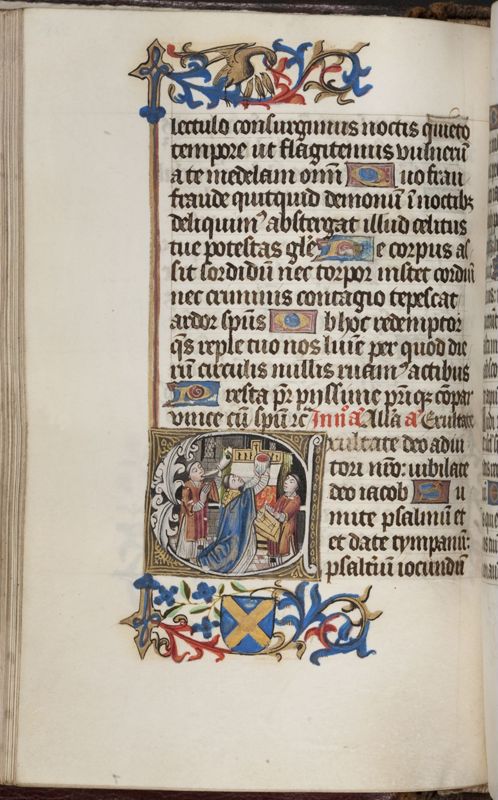 lectulo consurgimus noctis quieto
tempore ut flagitemus vulnerū
a te medelam omn̄i Quo frau
fraude quitquid demonū ī noctibꝫ
deliquimꝰ abstergat illud celitus
tue potestas gl̄e Ne corpus as
sit sordidū nec torpor instet cordiū
nec criminis contagio tepescat
ardor spūs Ob hoc redemptor
qs̄ reple tuo nos lumīe per quod die
rū circulis nullis ruamꝰ actibus
Presta pr̄ pijssime pr̄iqꝫ cōpar
vnice cū spū rc̄ Inuī. a͞ Alla a͞ Exultate
Exultate deo adiu
tori nr̄o: iubilate
deo iacob Su
mite psalmū et
et date tympanū:
psaltiū iocundū